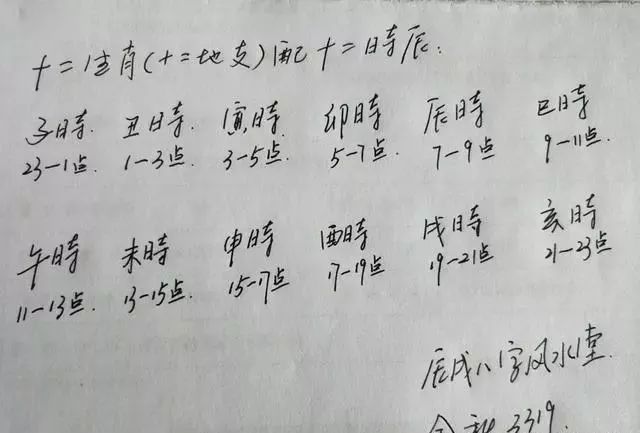 十二生肖(十二地支)配十二時辰:
子時. 丑時. 寅時. 卯時 辰時 巳時
23-1点. 1-3点. 3-5点. 5-7点. 7-9点 9-11点.
午時 未時 申時 酉時 戌時 亥時
11-13点. 13-15点. 15-17点 17-19点 19-21点 21-23点
辰戌八字风水堂.
3319.